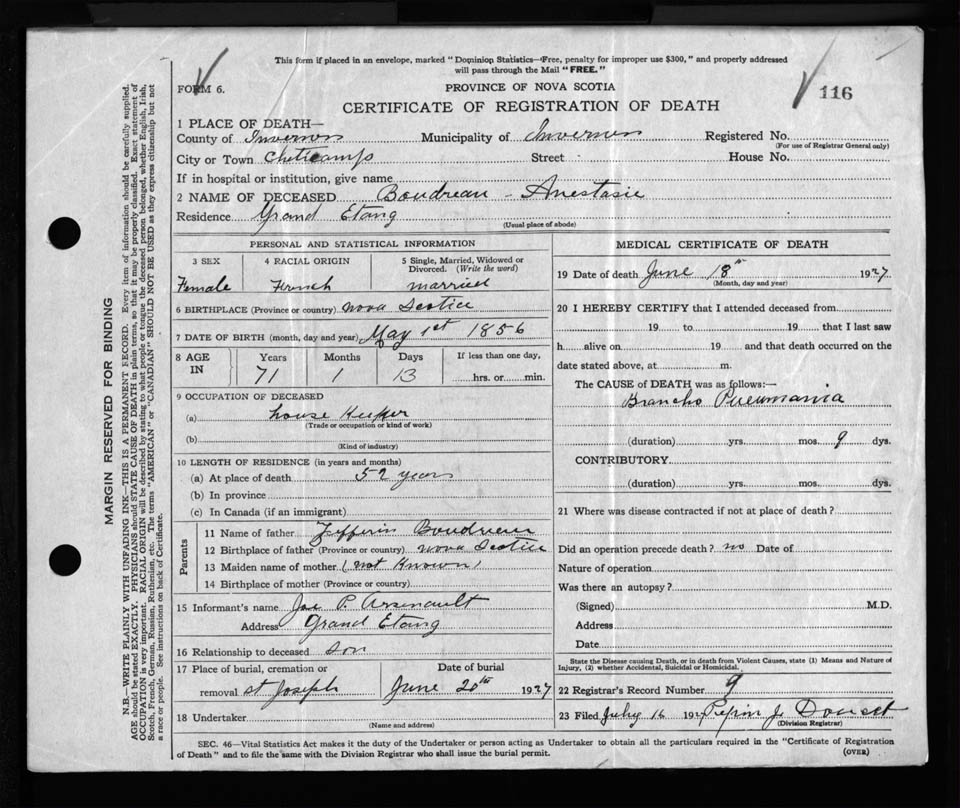 This form if placed in an envelope, marked "Dominion Statistics—Free, penalty for improper use $300," and properly addressed
will pass through the Mail "FREE."
FORM 6.
PROVINCE OF NOVA SCOTIA
116
CERTIFICATE OF REGISTRATION OF DEATH
1 PLACE OF DEATH—
County of Inverness Municipality of Inverness Registered No.
(For use of Registrar General only)
City or Town Cheticamp Street House No.
If in hospital or institution, give name
2 NAME OF DECEASED Boudreau - Anestasie
Residence Grand Etang
(Usual place of abode)
PERSONAL AND STATISTICAL INFORMATION
3 SEX 4 RACIAL ORIGIN 5 Single, Married, Widowed or
Divorced. (Write the word)
Female French married
6 BIRTHPLACE (Province or country) Nova Scotia
7 DATE OF BIRTH (month, day and year) May 1st 1856
8 AGE IN Years Months Days If less than one day,
71 1 13 hrs. or min.
9 OCCUPATION OF DECEASED
(a) house Keeper
(Trade or occupation or kind of work)
(b)
(Kind of industry)
10 LENGTH OF RESIDENCE (in years and months)
(a) At place of death 52 years
(b) In province
(c) In Canada (if an immigrant)
Parents
11 Name of father Zefferin Boudreau
12 Birthplace of father (Province or country) Nova Scotia
13 Maiden name of mother (not Known)
14 Birthplace of mother (Province or country)
15 Informant's name Joe P. Arsenault
Address Grand Etang
16 Relationship to deceased son
17 Place of burial, cremation or Date of burial
removal St Joseph June 20th 1927
18 Undertaker
(Name and address)
MEDICAL CERTIFICATE OF DEATH
19 Date of death June 18th 1927
(Month, day and year)
20 I HEREBY CERTIFY that I attended deceased from
19 to 19 that I last saw
h alive on 19 and that death occurred on the
date stated above, at m.
The CAUSE of DEATH was as follows:—
Brancho Pneumania
(duration) yrs. mos. 9 dys.
CONTRIBUTORY
(duration) yrs. mos. dys.
21 Where was disease contracted if not at place of death?
Did an operation precede death? no Date of
Nature of operation
Was there an autopsy?
(Signed) M.D.
Address
Date
State the Disease causing Death, or in death from Violent Causes, state (1) Means and Nature of
Injury, (2) whether Accidental, Suicidal or Homicidal.
22 Registrar's Record Number 9
23 Filed July 16 192 Pepin J. Doucet
(Division Registrar)
SEC. 46—Vital Statistics Act makes it the duty of the Undertaker or person acting as Undertaker to obtain all the particulars required in the "Certificate of Registration
of Death" and to file the same with the Division Registrar who shall issue the burial permit.
(OVER)
MARGIN RESERVED FOR BINDING
N.B.—WRITE PLAINLY WITH UNFADING INK—THIS IS A PERMANENT RECORD. Every item of information should be carefully supplied.
AGE should be stated EXACTLY. PHYSICIANS should STATE CAUSE OF DEATH in plain terms, so that it may be properly classified. Exact statement of
OCCUPATION is very important. RACIAL ORIGIN will be described by stating to what people or tongue the deceased person belonged, whether English, Irish,
Scotch, French, German, Russian, Ruthenian, etc. The terms "AMERICAN" or "CANADIAN" SHOULD NOT BE USED as they express citizenship but not
a race or people. See instructions on back of Certificate.